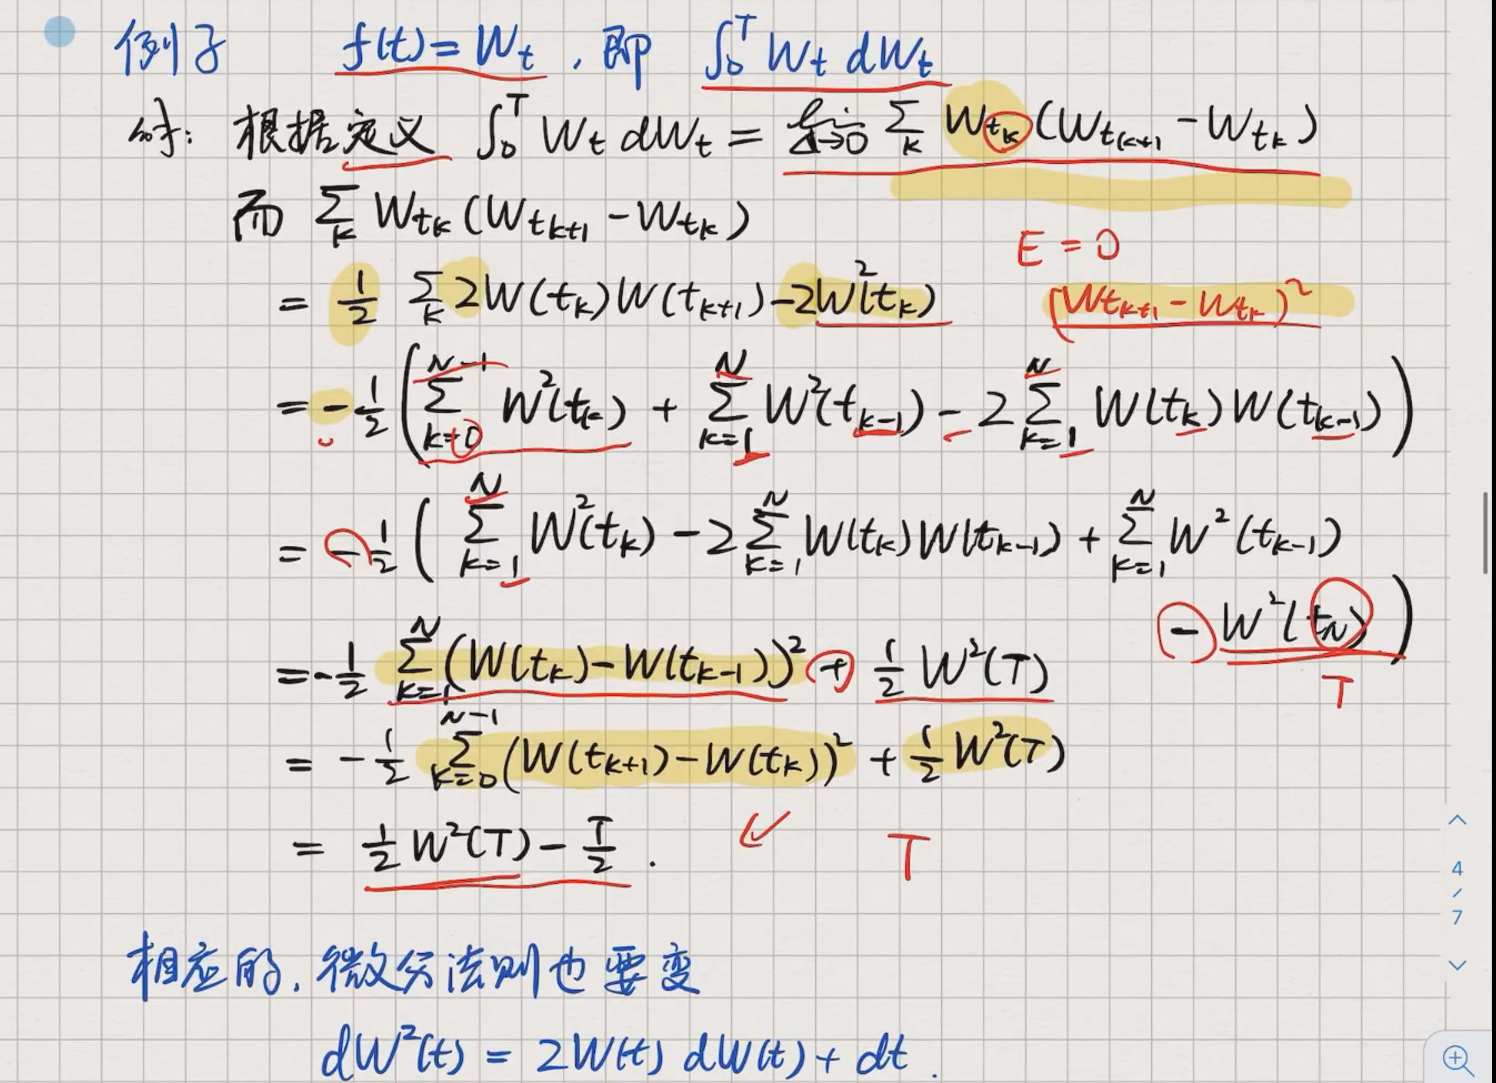 例子 f(t)=Wt，即 ∫₀ᵀ Wt dWt
解：根据定义 ∫₀ᵀ Wt dWt = lim_{Δ→0} Σ_k W_{tk}(W_{tk+1} - W_{tk})
而 Σ_k W_{tk}(W_{tk+1} - W_{tk})
E = 0
= 1/2 Σ_k 2W(tk)W(tk+1) - 2W²(tk) (W_{tk+1} - W_{tk})²
= -1/2 ( Σ_{k=0}^{N-1} W²(tk) + Σ_{k=1}^{N} W²(tk-1) - 2 Σ_{k=1}^{N} W(tk)W(tk-1) )
= -1/2 ( Σ_{k=1}^{N} W²(tk) - 2 Σ_{k=1}^{N} W(tk)W(tk-1) + Σ_{k=1}^{N} W²(tk-1)
- W²(tN) )
T
= -1/2 Σ_{k=1}^{N} (W(tk) - W(tk-1))² + 1/2 W²(T)
= -1/2 Σ_{k=0}^{N-1} (W(tk+1) - W(tk))² + 1/2 W²(T)
= 1/2 W²(T) - T/2 . T
相应的，微分法则也要变
dW²(t) = 2W(t) dW(t) + dt .
4
/
7